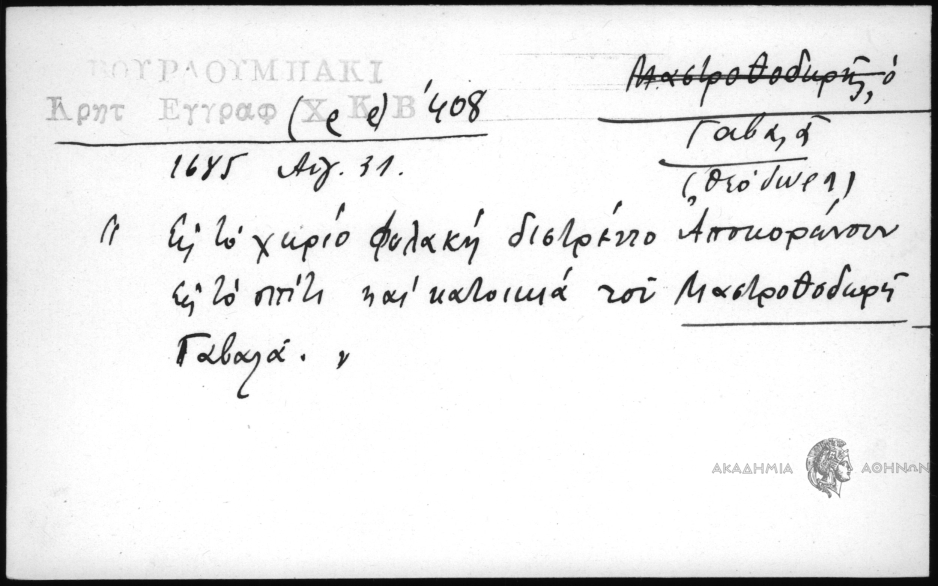 ΒΟΥΡΔΟΥΜΠΑΚΙ
Κρητ Εγγραφ (Χ. Κ. Β) 408
Μαστροθοδωρῆς, ὁ
Γαβαλᾶ
(Θεόδωρη)
1685 Αὐγ. 31.
" Εἰς τὸ χωριό φυλακή διστρέντο Ἀποκορώνου
εἰς τὸ σπίτι καί κατοικιά τοῦ Μαστροθοδωρῆ
Γαβαλᾶ. "
ΑΚΑΔΗΜΙΑ ΑΘΗΝΩΝ